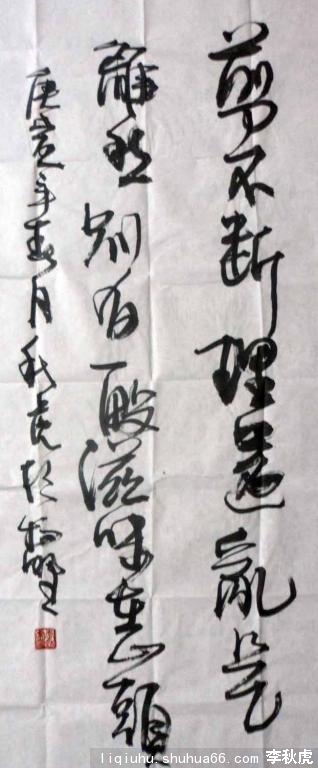 剪不断理還亂是
離愁别有一般滋味在心頭
庚寅年春月秋虎於
liqiuhu.shuhua66.com 李秋虎